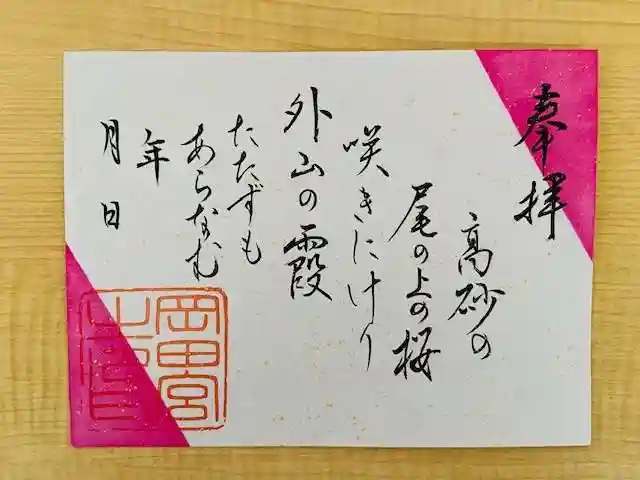 奉拝
高砂の
尾の上の桜
咲きにけり
外山の霞
たたずも
あらなむ
年
月日
岡田宮